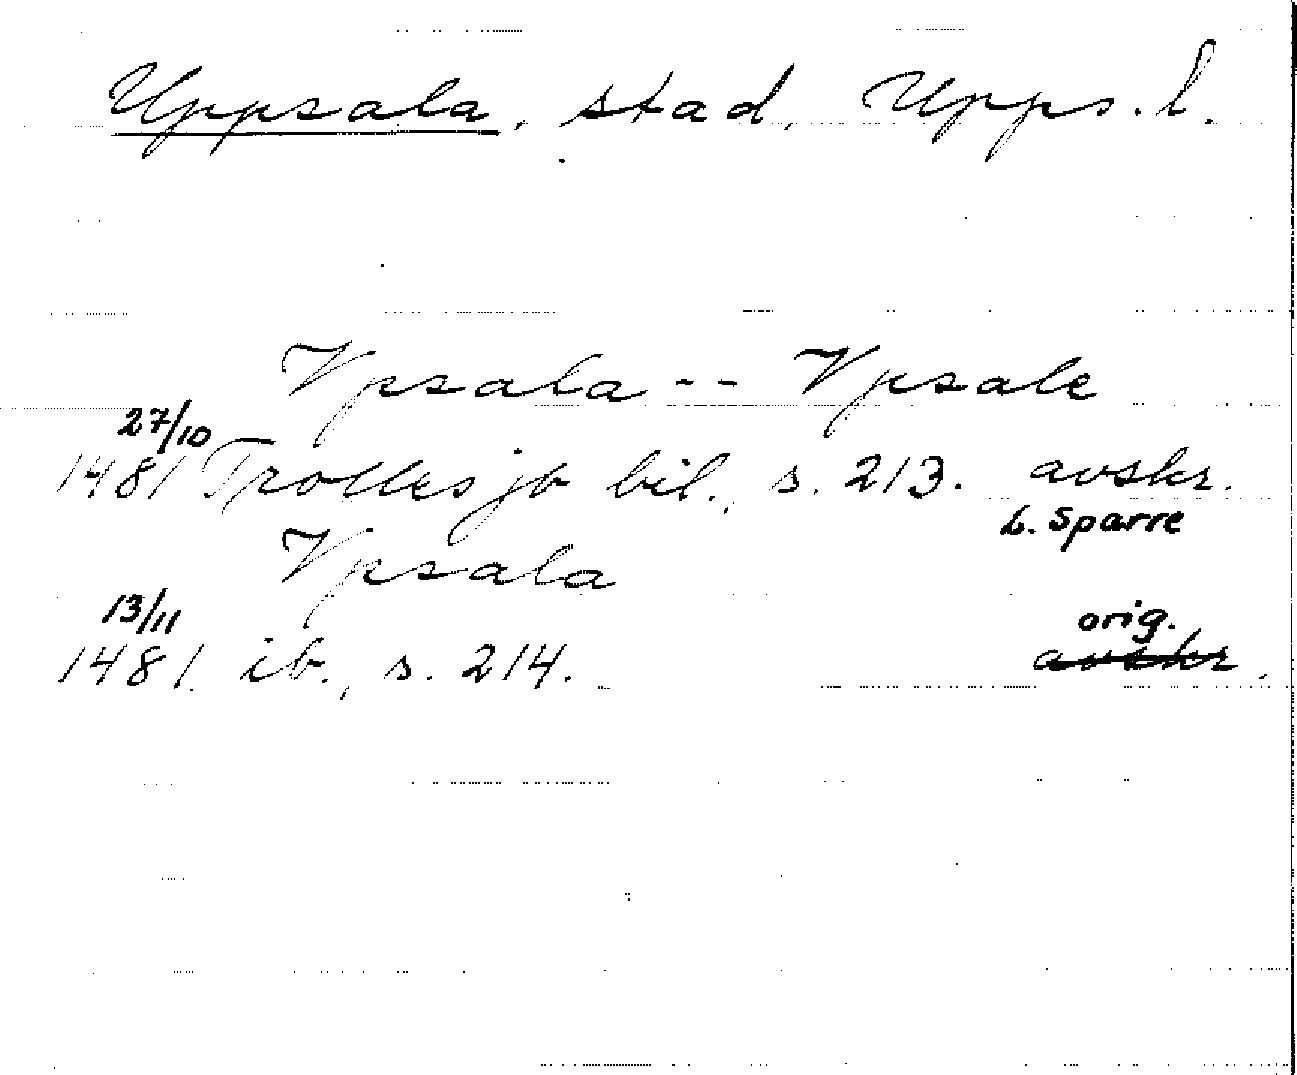 Uppsala, stad, Upps. l.
Vpsala -- Vpsale
27/10
1481 Trolles jb bil., s. 213. avskr.
L. Sparre
Vpsala
13/11 orig.
1481 ib., s. 214. avskr.